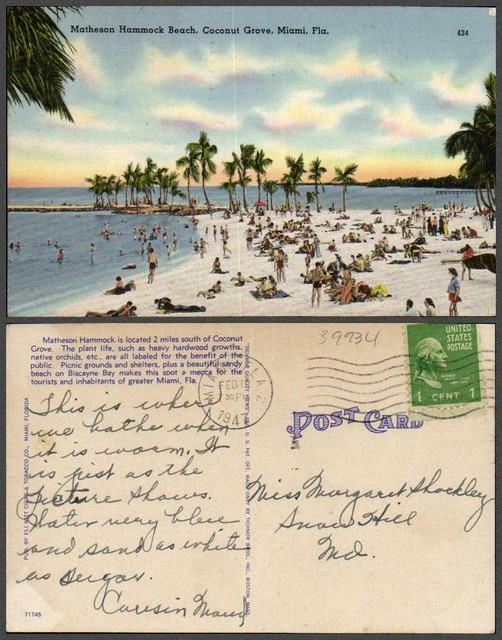 Matheson Hammock Beach, Coconut Grove, Miami, Fla.
424
Matheson Hammock is located 2 miles south of Coconut
Grove. The plant life, such as heavy hardwood growths,
native orchids, etc., are all labeled for the benefit of the
public. Picnic grounds and shelters, plus a beautiful sandy
beach on Biscayne Bay makes this spot a mecca for the
tourists and inhabitants of greater Miami, Fla.
39734
MIAMI FLA. 2
FEB 1
30 PM
194
UNITED
STATES
POSTAGE
1 CENT 1
POST CARD
This is where
we bathe when
it is warm. It
is just as the
Picture shows.
Water very blue
and sand as white
as Sugar.
Cousin Mary
Miss Margaret Shockley
Snow Hill
Md.
PUB. BY ELI WITT CIGAR & TOBACCO CO., MIAMI, FLORIDA
REG. U. S. PAT. OFF. MADE ONLY BY TICHNOR BROS., INC., BOSTON, MASS.
71745